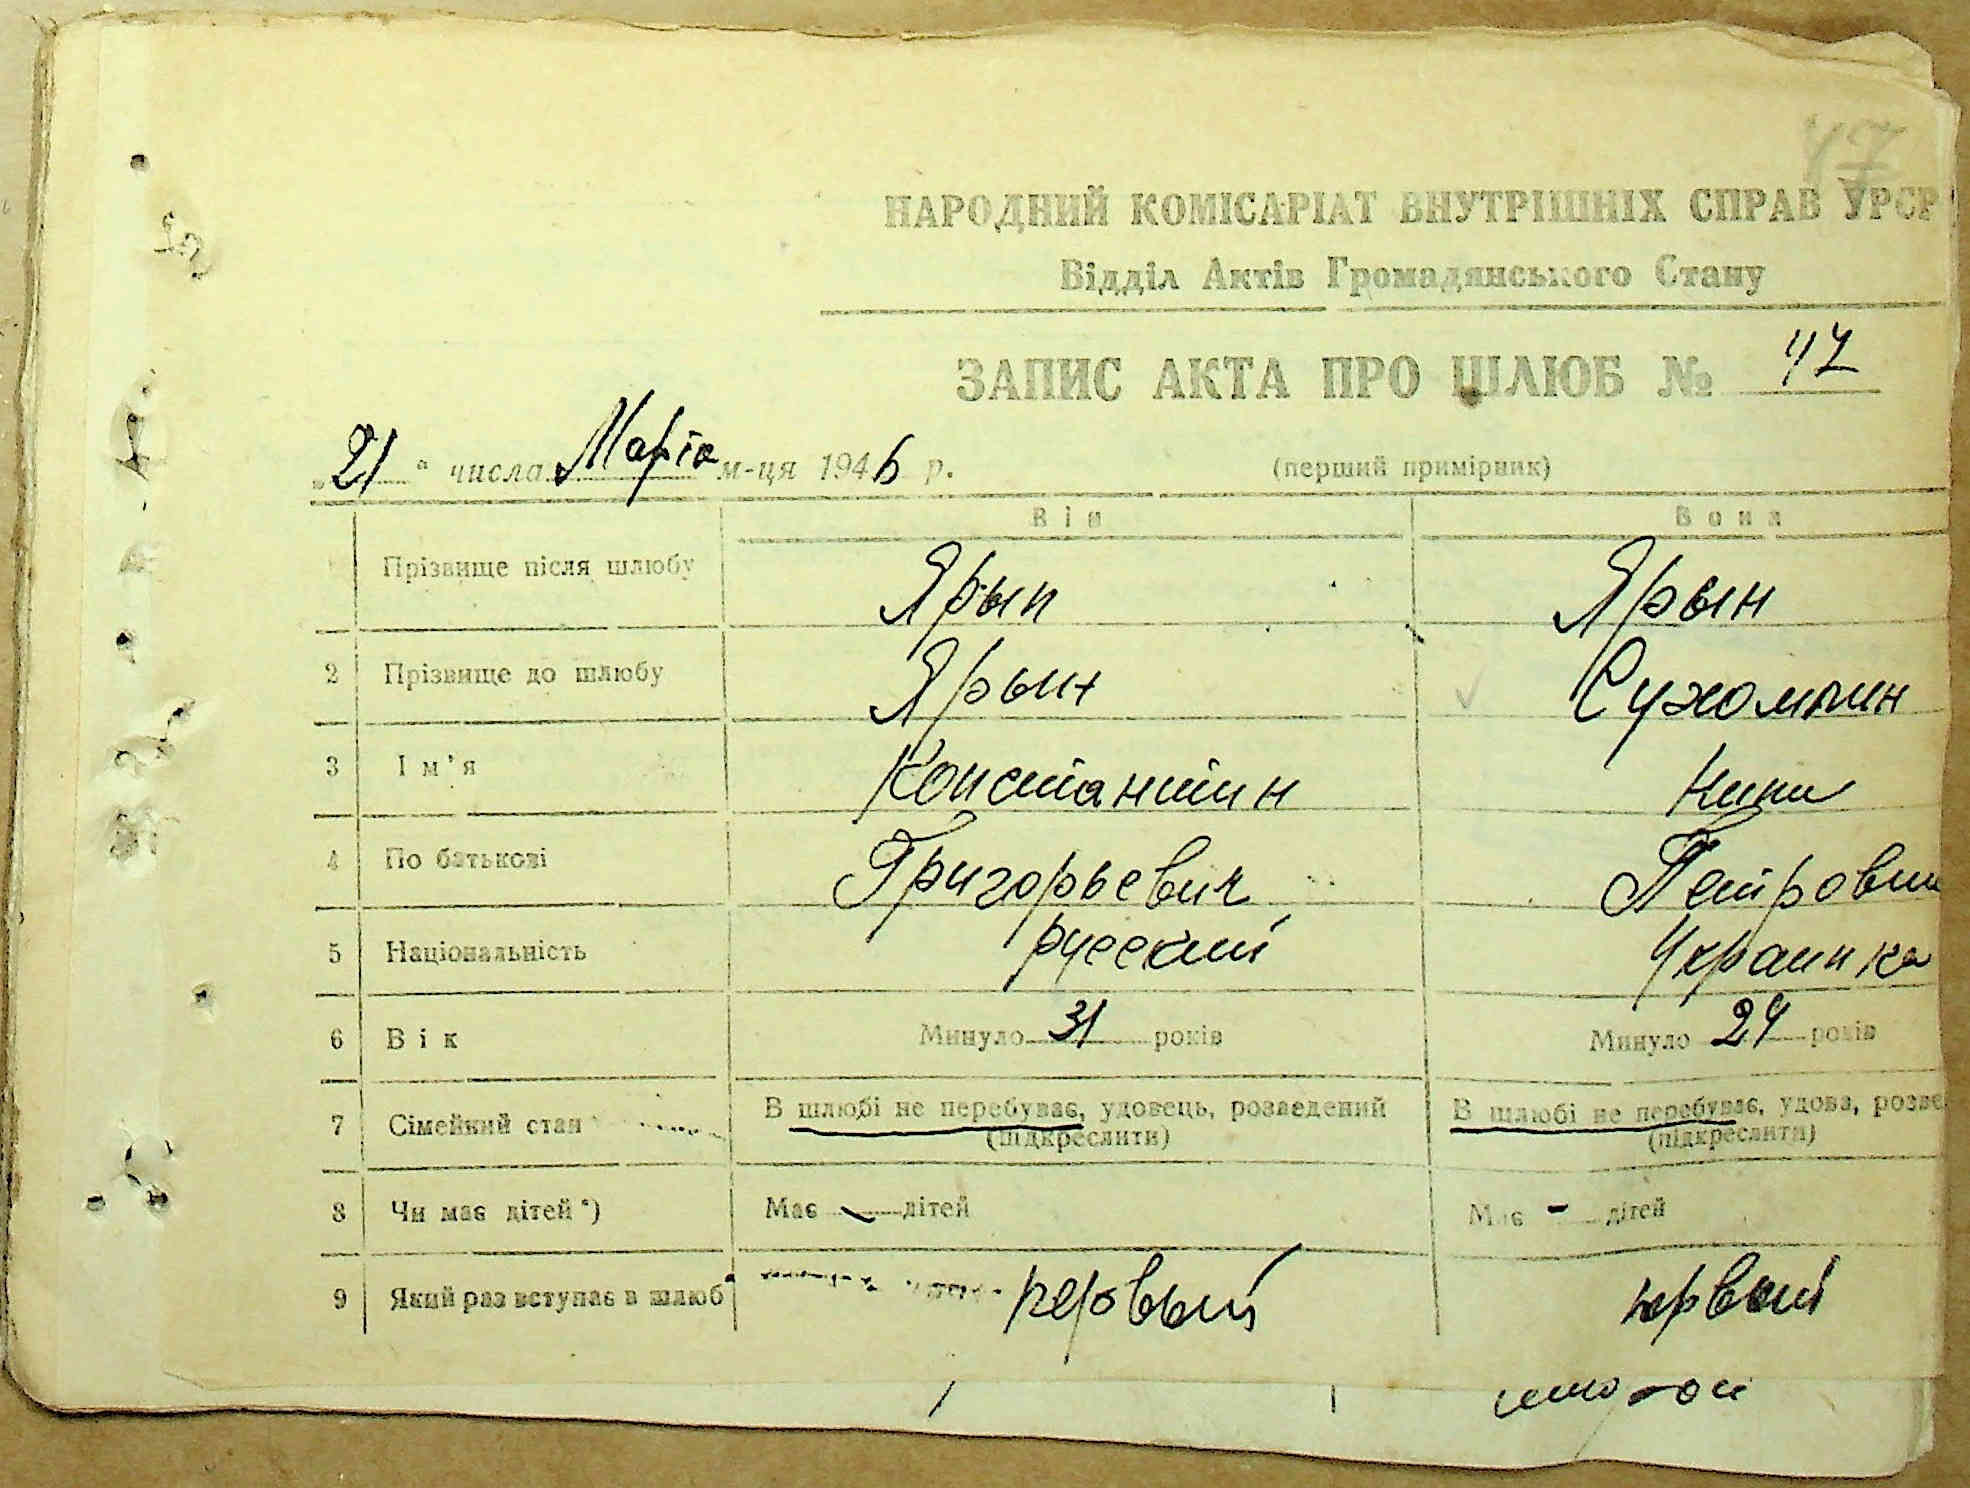 47
НАРОДНИЙ КОМІСАРІАТ ВНУТРІШНІХ СПРАВ УРСР
Відділ Актів Громадянського Стану
ЗАПИС АКТА ПРО ШЛЮБ № 47
„21“ числа Марта м-ця 1946 р. (перший примірник)
Він Вона
Прізвище після шлюбу Ярын Ярын
2 Прізвище до шлюбу Ярын Сухомлин
3 Ім'я Константин Нина
4 По батькові Григорьевич Петровн
5 Національність русский Украинка
6 Вік Минуло 31 років Минуло 24 років
7 Сімейний стан В шлюбі не перебуває, удовець, розведений В шлюбі не перебуває, удова, розве
(підкреслити) (підкреслити)
8 Чи має дітей*) Має - дітей Має - дітей
9 Який раз вступає в шлюб первый первый